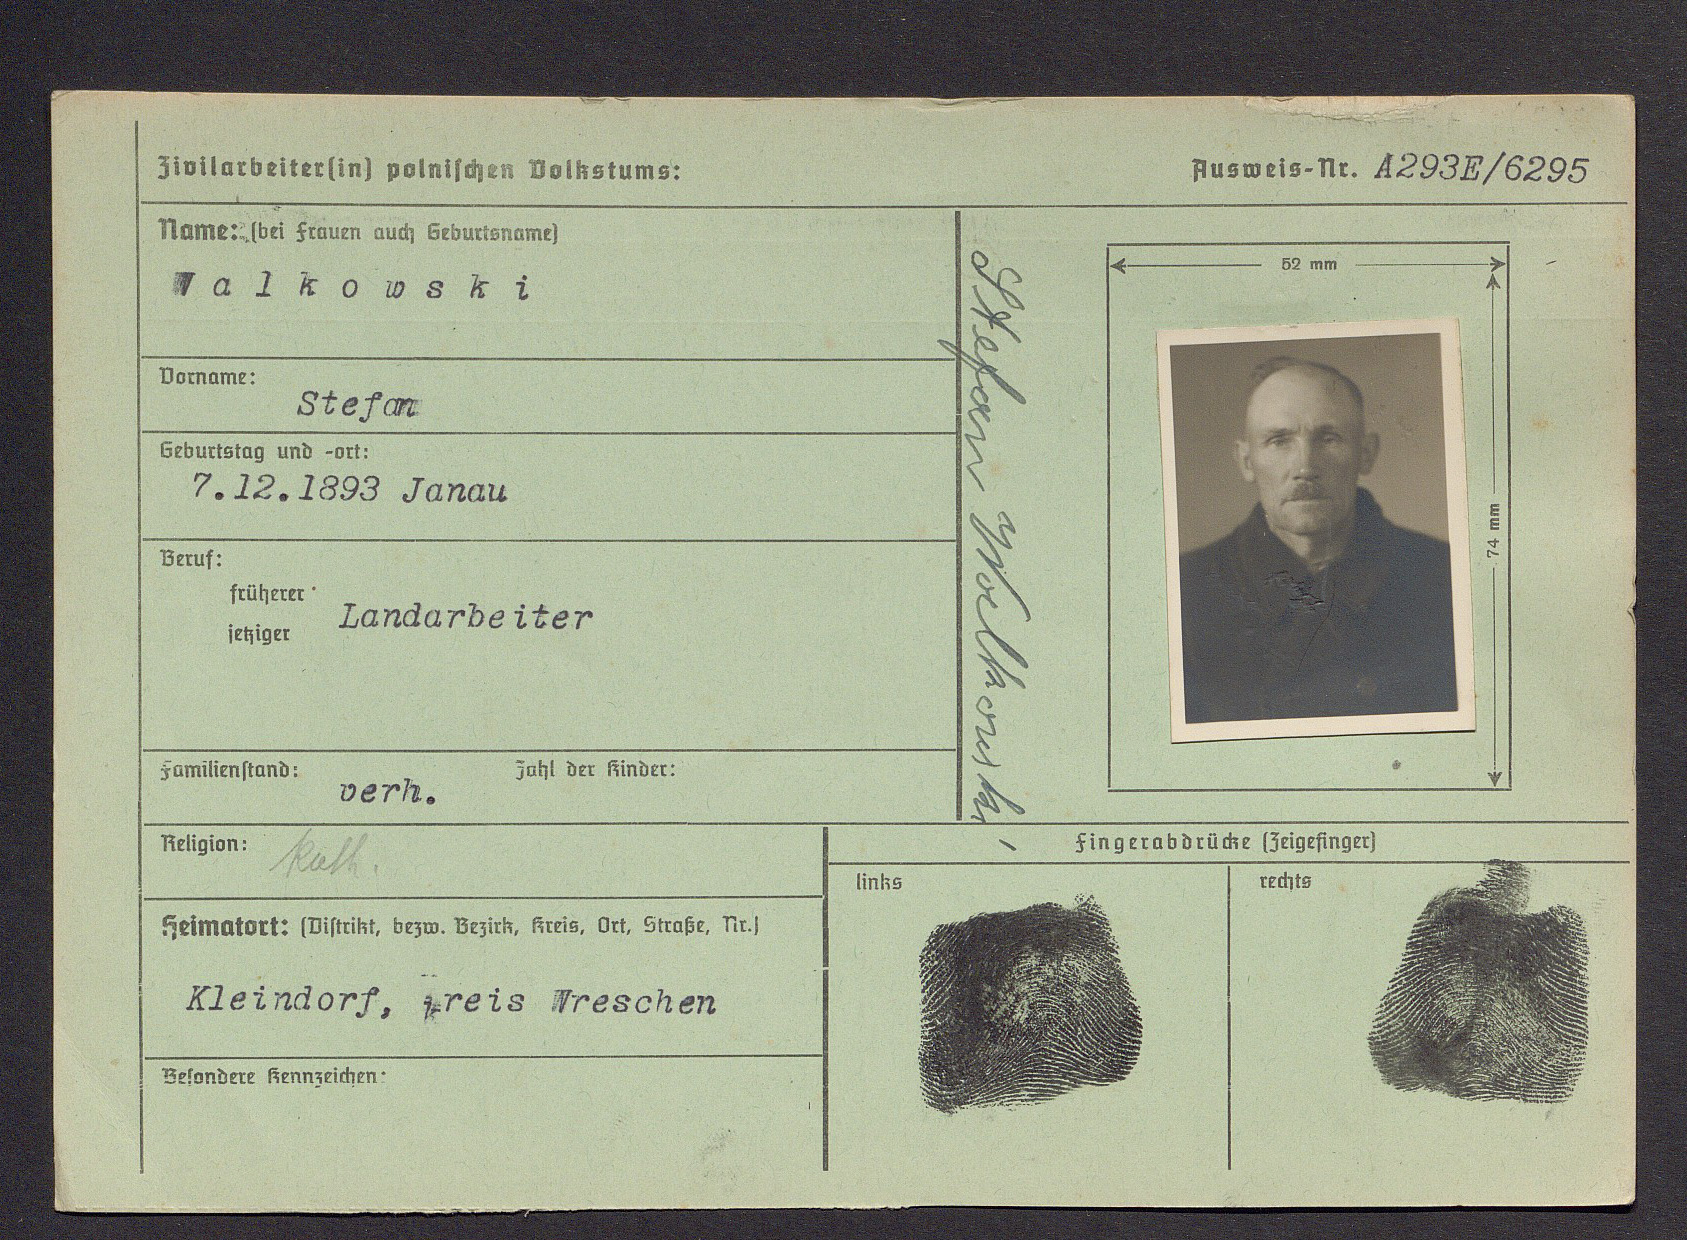 Zivilarbeiter(in) polnischen Volkstums:
Ausweis-Nr. A293E/6295
Name: (bei Frauen auch Geburtsname)
Walkowski
Vorname:
Stefan
Geburtstag und -ort:
7.12.1893 Janau
Beruf:
früherer
jetziger
Landarbeiter
Familienstand: verh. Zahl der Kinder:
Religion: kath.
Heimatort: (Distrikt, bezw. Bezirk, Kreis, Ort, Straße, Nr.)
Kleindorf, Kreis Wreschen
Besondere Kennzeichen:
Stefan Woelkowski
52 mm
74 mm
Fingerabdrücke (Zeigefinger)
links
rechts